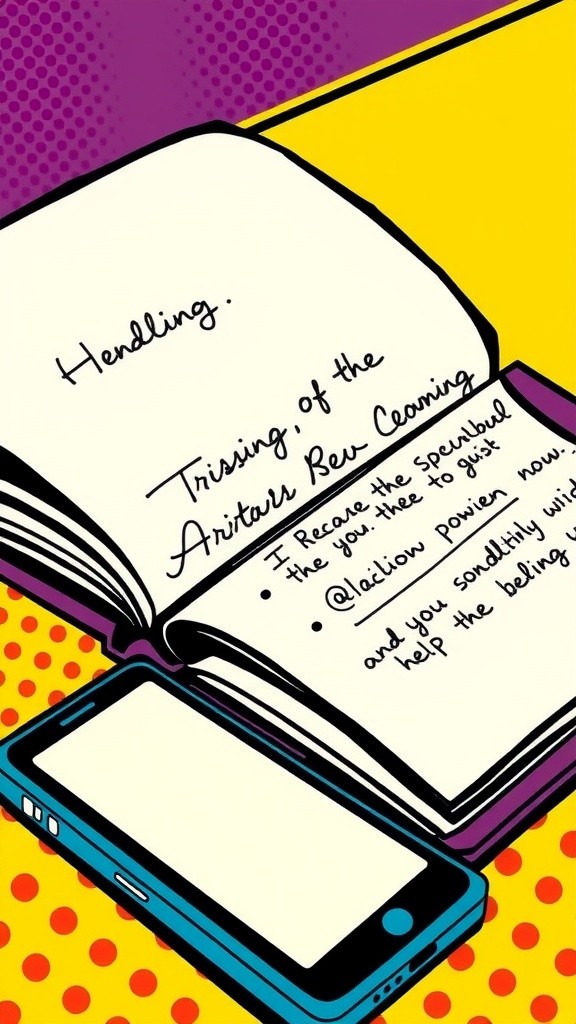 Hendling.
Trissing, of the
Aritars Beu Cearning
I Recare the specislbul
the you. thee to guist
@lacliow powien now.
and you sondlitily wid
help the beling